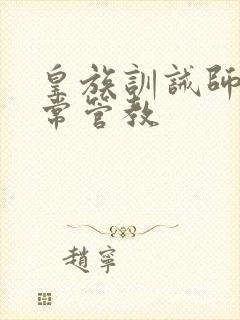 皇族訓誡師
常管教
趙寧